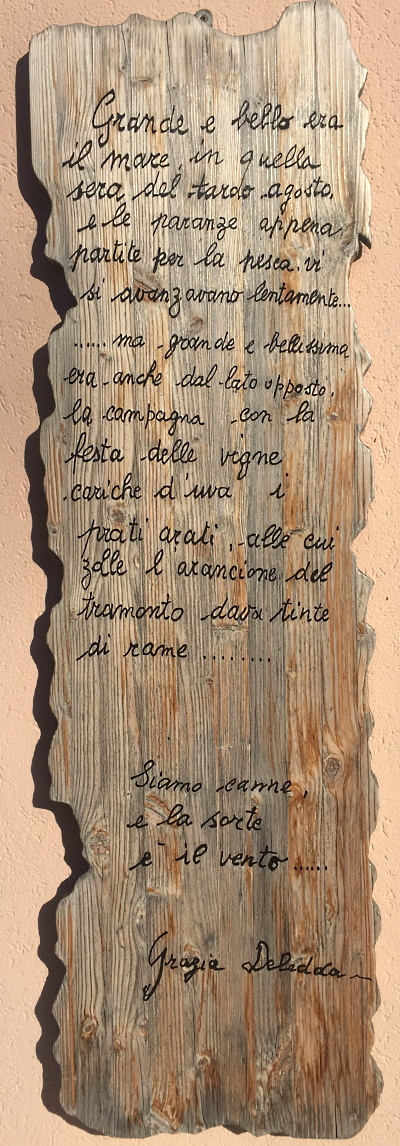 Grande e bello era
il mare, in quella
sera del tardo agosto,
e le paranze appena
partite per la pesca, vi
si avanzavano lentamente...
...... ma grande e bellissima
era anche dal lato opposto,
la campagna con la
festa delle vigne
cariche d'uva i
prati arati, alle cui
zolle l arancione del
tramonto dava tinte
di rame .........
Siamo canne,
e la sorte
è il vento ......
Grazia Deledda